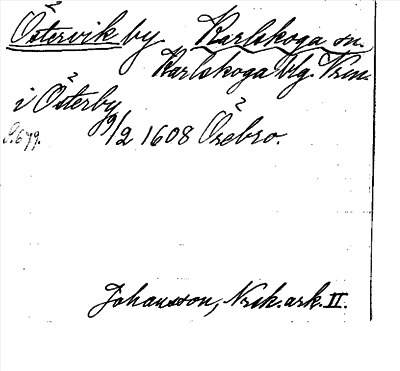 Östervik by Karlskoga sn.
Karlskoga blg. Vrml.
i Österby
S. 679. 19/2 1608 Örebro.
Johansson, Nrk. ark. II.